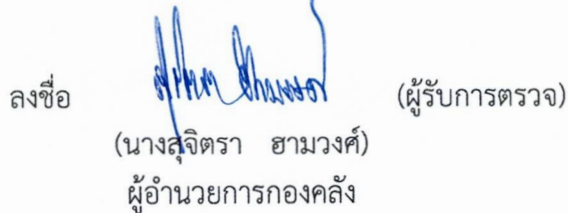 ลงชื่อ (ผู้รับการตรวจ)
(นางสุจิตรา ฮามวงศ์)
ผู้อำนวยการกองคลัง